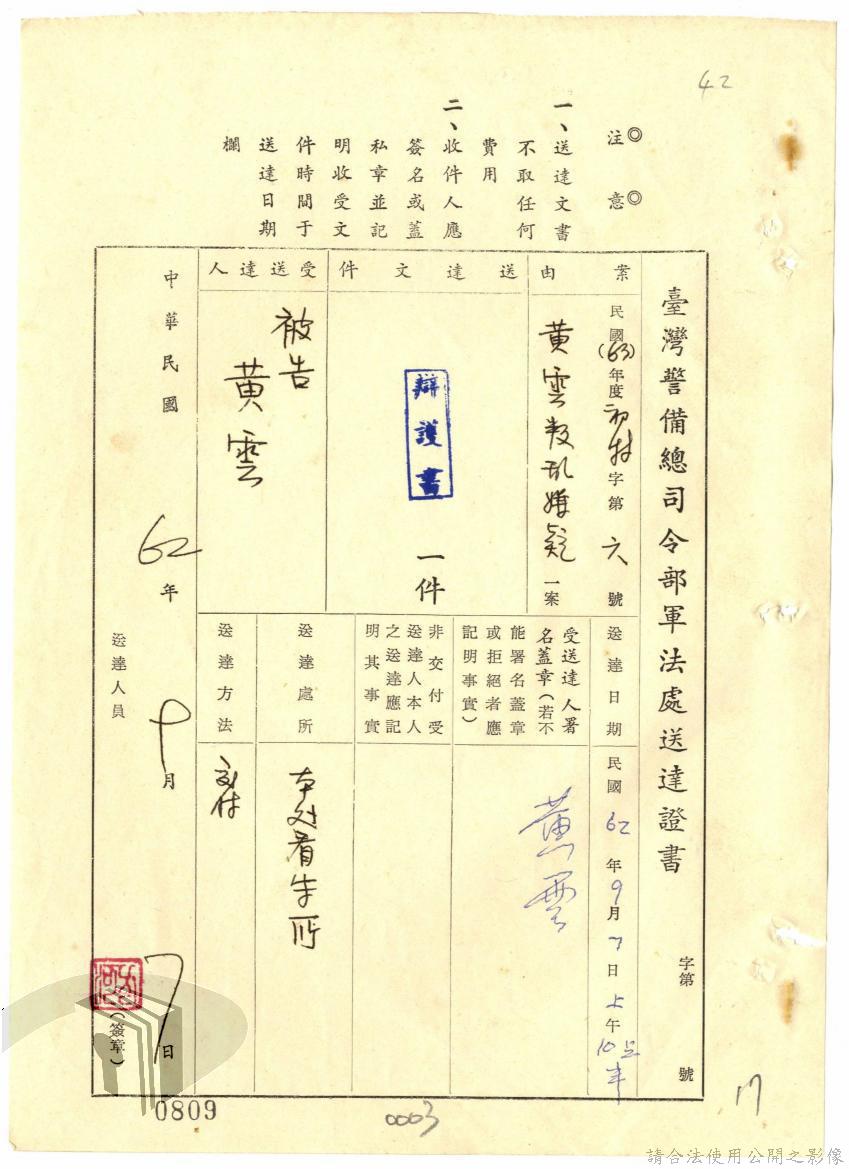 42
◎注意◎
一、送達文書
不取任何
費用
二、收件人應
簽名或蓋
私章並記
明收受文
件時間于
送達日期
欄
臺灣警備總司令部軍法處送達證書
字第 號
案由
民國(63)年度初特字第六號
黃雲叛乱嫌疑一案
送達文件
辯護書
一件
受送達人
被告
黃雲
送達日期
民國62年9月7日上午10点半
受送達人署
名蓋章(若不
能署名蓋章
或拒絕者應
記明事實)
黃雲
非交付受
送達人本人
之送達應記
明其事實
送達處所
本处看守所
送達方法
交付
中華民國62年9月7日
送達人員
(簽章)
0809
0003
17
請合法使用公開之影像